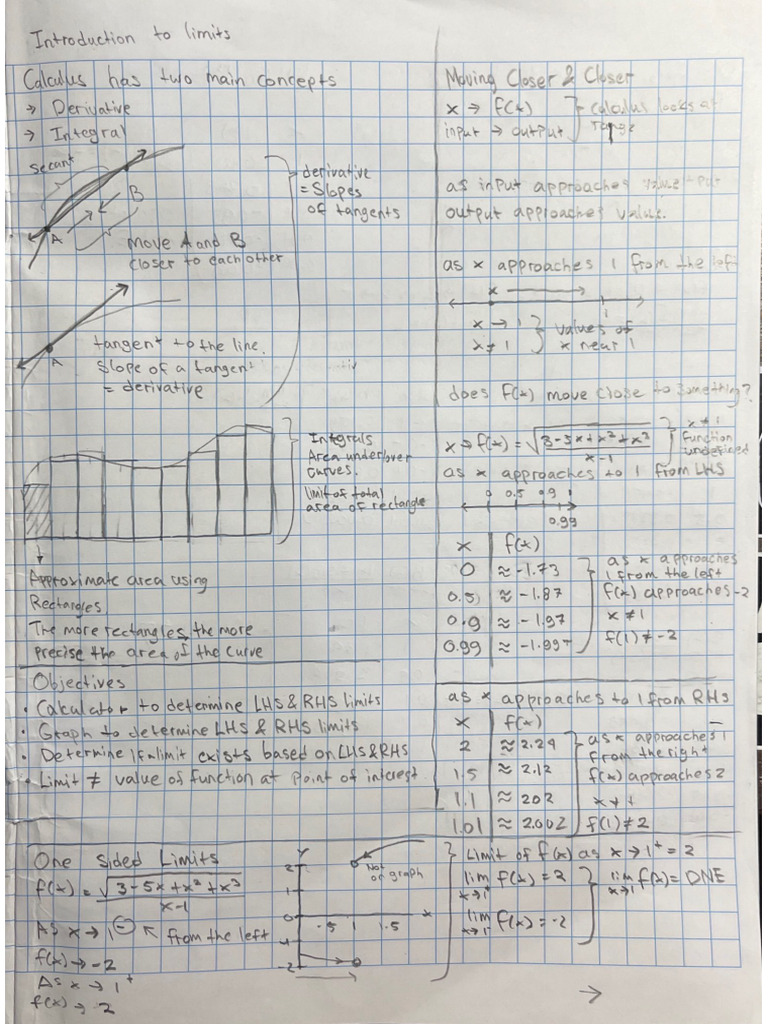 Introduction to limits
Calculus has two main concepts
→ Derivative
→ Integral
secant
B
A
move A and B
closer to each other
derivative
= Slopes
of tangents
A
tangent to the line.
Slope of a tangent
= derivative
Integrals
Area under/over
curves.
limit of total
area of rectangle
Approximate area using
Rectangles
The more rectangles, the more
precise the area of the curve
Objectives
• Calculator to determine LHS & RHS limits
• Graph to determine LHS & RHS limits
• Determine if a limit exists based on LHS & RHS
• Limit ≠ value of function at point of interest
One sided Limits
f(x) = √(3-5x+x²+x³)
x-1
As x → 1⁻ from the left
f(x) → -2
As x → 1⁺
f(x) → 2
Y
2
1
0
-2
.5 1 1.5
x
Not on graph
Moving Closer & Closer
x → f(x)
input → output
calculus looks at
as input approaches value
output approaches value.
as x approaches 1 from the left
x
1
x → 1
x ≠ 1
values of
x near 1
does f(x) move close to something?
x → f(x) = √(3-5x+x²+x³)
x-1
x ≠ 1
function
undefined
as x approaches to 1 from LHS
0 0.5 0.9 1
0.99
x f(x)
0 ≈ -1.73
0.5 ≈ -1.87
0.9 ≈ -1.97
0.99 ≈ -1.997
as x approaches
1 from the left
f(x) approaches -2
x ≠ 1
f(1) ≠ -2
as x approaches to 1 from RHS
x f(x)
2 ≈ 2.24
1.5 ≈ 2.12
1.1 ≈ 202
1.01 ≈ 2.002
as x approaches 1
from the right
f(x) approaches 2
f(1) ≠ 2
Limit of f(x) as x → 1⁺ = 2
lim f(x) = 2
x→1⁺
lim f(x) = -2
x→1⁻
lim f(x) = DNE
x→1
→